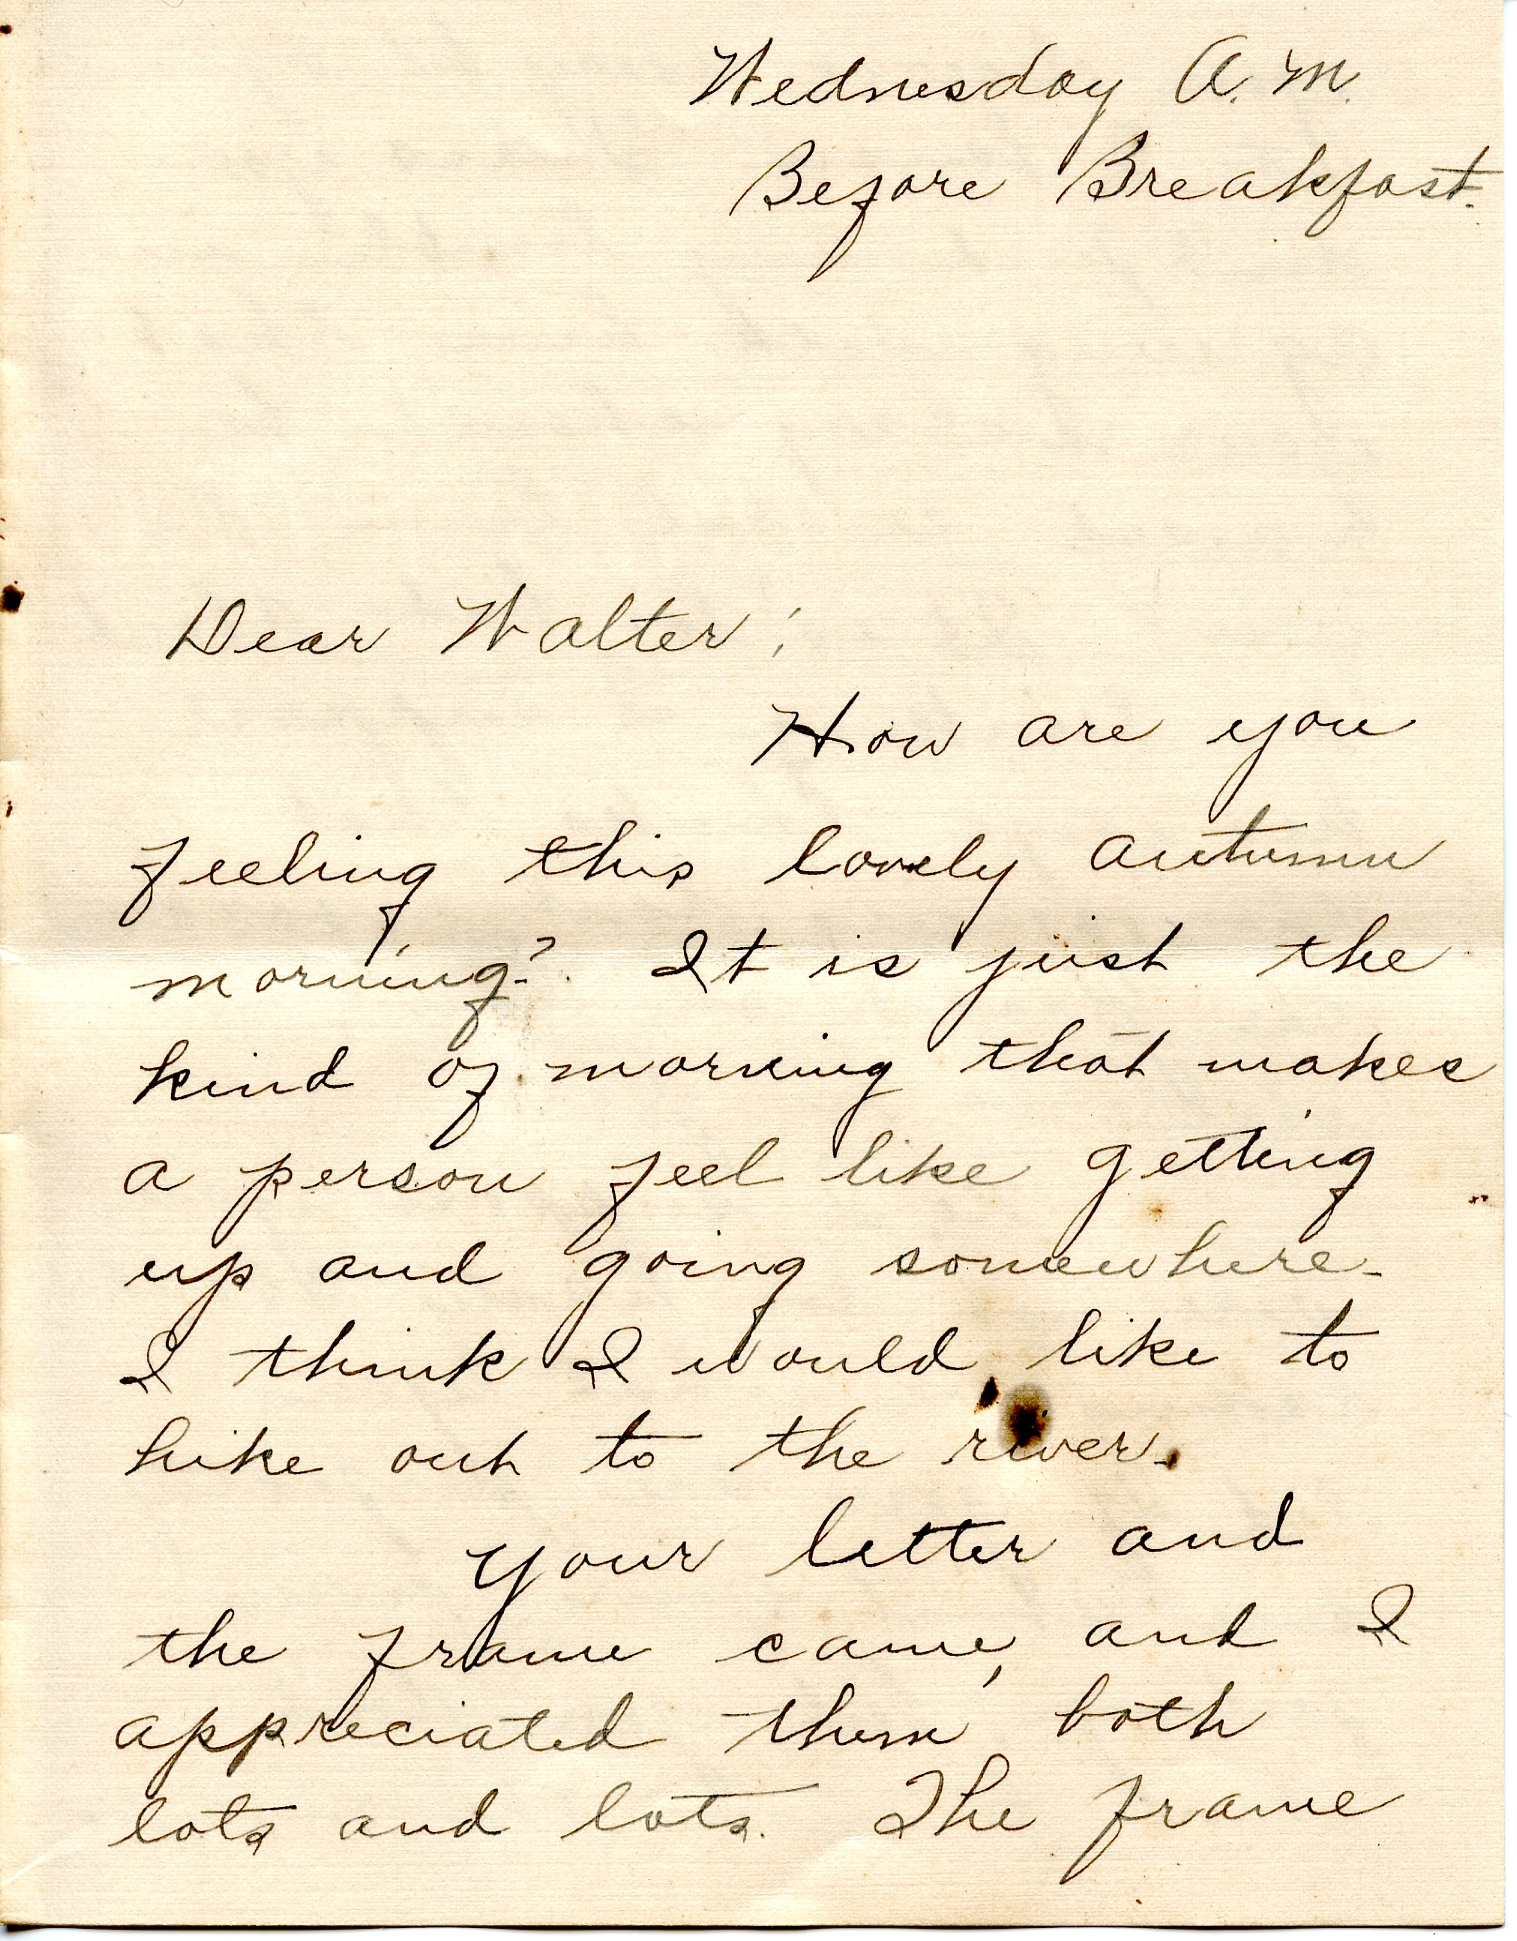 Wednesday A.M.
Before Breakfast.
Dear Walter:
How are you
feeling this lovely autumn
morning? It is just the
kind of morning that makes
a person feel like getting
up and going somewhere.
I think I would like to
hike out to the river.
Your letter and
the frame came, and I
appreciated them both
lots and lots. The frame